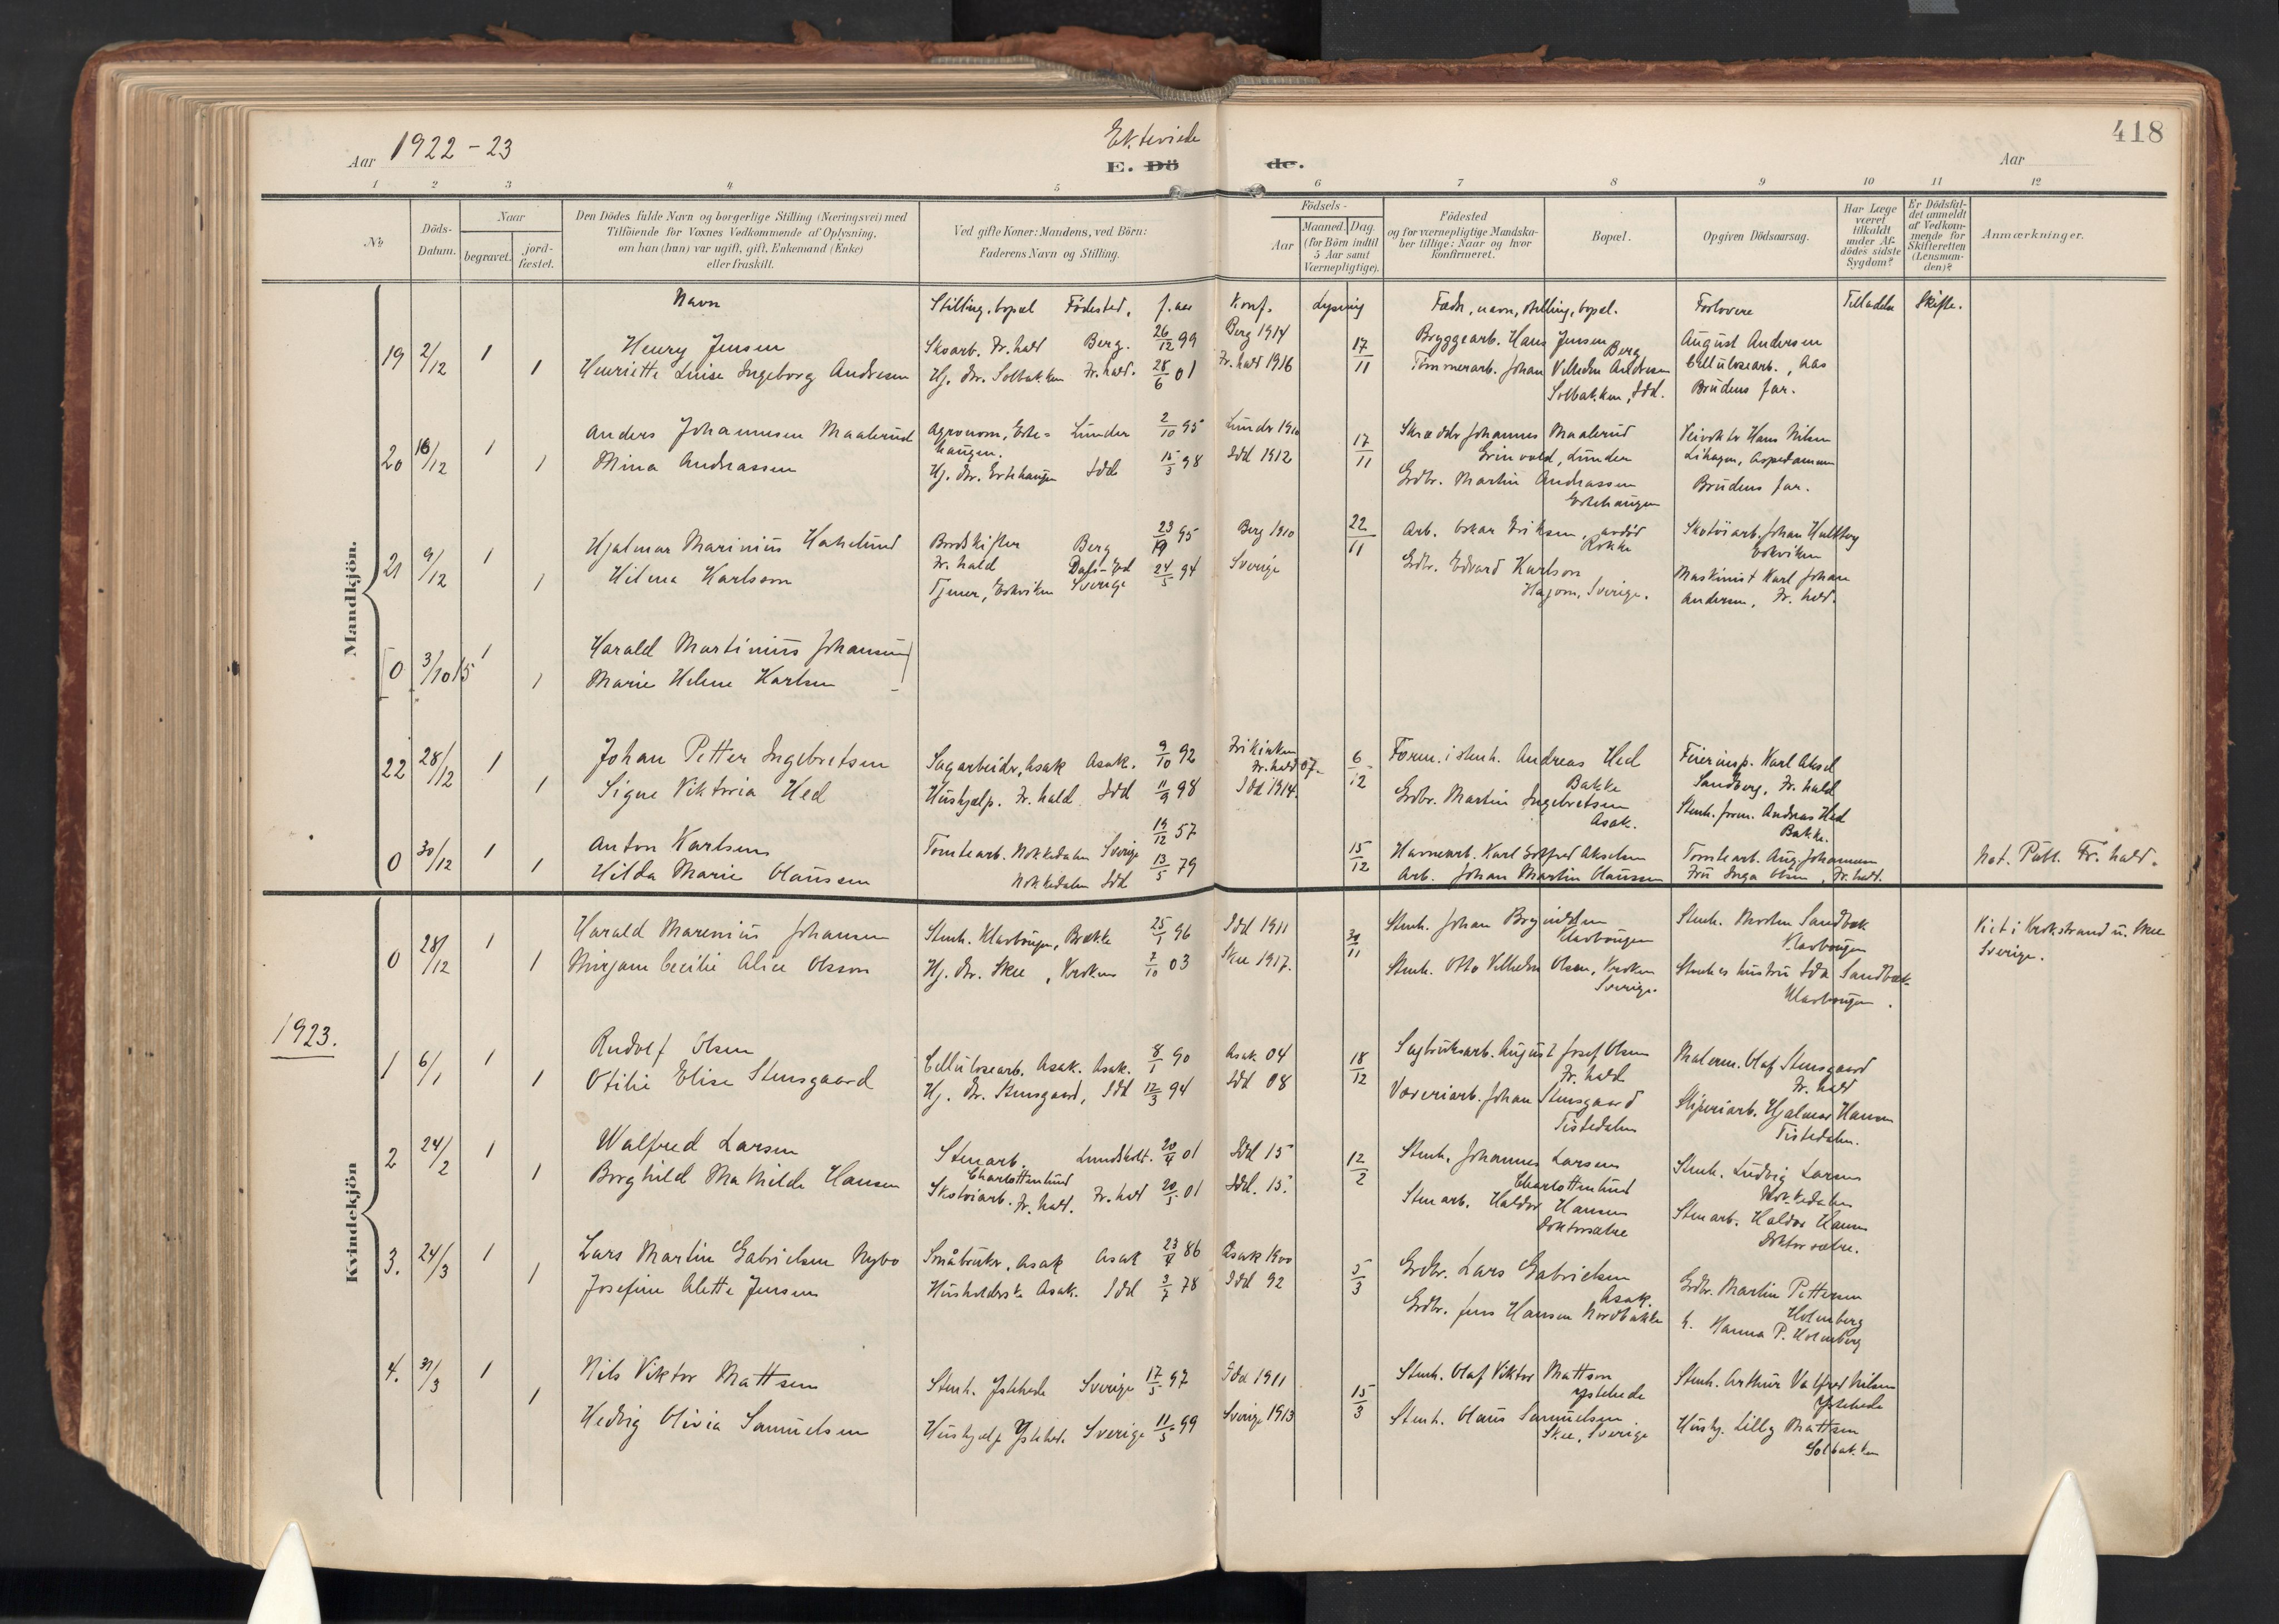 418
Aar 1922-23
Ektevide
E. Dö
de.
Aar
1 2 3 4 5 6 7 8 9 10 11 12
No
Döds-
Datum.
Naar
begravet.
jord-
fæstet.
Den Dödes fulde Navn og borgerlige Stilling (Næringsvei) med
Tilföiende for Voxnes Vedkommende af Oplysning,
om han (hun) var ugift, gift, Enkemand (Enke)
eller fraskilt.
Ved gifte Koner: Mandens, ved Börn:
Faderens Navn og Stilling.
Födsels-
Aar
Maaned. Dag.
(for Börn indtil
5 Aar samt
Værnepligtige).
Födested
og for værnepligtige Mandska-
ber tillige: Naar og hvor
konfirmeret.
Bopæl.
Opgiven Dödsaarsag.
Har Læge
været
tilkaldt
under Af-
dödes sidste
Sygdom?
Er Dödsfal-
det anmeldt
af Vedkom-
mende for
Skifteretten
(Lensman-
den)?
Anmærkninger.
Mandkjön.
Kvindekjön
Navn
Stilling, bopæl Födested, f. aar
Konf. Lysning
Fædr, navn, stilling, bopæl.
Forlovere
Tilladelse Skifte.
19 2/12 1 Henry Jensen
Skoarb. Fr.hald Berg. 26/12 99
Berg 1914
17/11
Bryggearb. Hans Jensen
Berg
August Andersen
1 Henriette Luise Ingeborg Andresen
Hj. Dr. Solbakken Fr.hald. 28/6 01
Fr.hald 1916
Tömmerarb. Johan Vilhelm Andresen
Solbakken, Idd.
Cellulosearb., Aas
Brudens far.
20 16/12 1 Anders Johannesen Maalerud
Agronom, Erte=
haugen.
Lunder 2/10 95
Lunder 1910
17/11
Skrædder Johannes Maalerud
Grinvold, Lunder
Veivokter Hans Nilsen
Lihagen, Aspedammen
1 Mina Andreassen
Hj. Dr. Ertehaugen Idd 15/3 98
Idd 1912
Grdbr. Martin Andreassen
Ertehaugen
Brudens far.
21 9/12 1 Hjalmar Marinius Hakelund
Bordskifter
Fr.hald
Berg 23/19 95
Berg 1910
22/11
Arb. Oskar Eriksen, avdöd
Rokke
Skotöiarb. Johan Hultberg
Eskviken
1 Hilma Karlsson
Tjener, Eskviken
Dals-Ed
Sverige
24/5 94
Sverige
Grdbr. Edvard Karlson
Hagom, Sverige.
Maskinist Karl Johan
Andersen, Fr.hald.
0 3/10 15 1 Harald Martinius Johansen
1 Marie Helene Karlsen
22 28/12 1 Johan Petter Ingebretsen
Sagarbeider, Asak Asak. 9/10 92
Frikirken
Fr.hald 07.
6/12
Form. i stenh. Andreas Hed
Bakke
Feierinsp. Karl Aksel
Sandberg, Fr.hald
1 Signe Viktoria Hed
Hushjelp. Fr.hald. Idd 11/9 98
Idd 1914.
Grdbr. Martin Ingebretsen
Asak.
Stenh. form. Andreas Hed
Bakke.
0 30/12 1 Anton Karlsen
Tomtearb. Nokkedalen Sverige 19/12 57
15/12
Havnearb. Karl Gotfred Akselsen
Tomtearb. Aug. Johannesen
Not. Publ. Fr.hald.
1 Hilda Marie Olaussen
Nokkedalen Idd 13/5 79
Arb. Johan Martin Olaussen
Fru Inga Olsen, Fr.hald.
0 28/12 1 Harald Marenius Johansen
Stenh. Klavbingen, Brekke 25/1 96
Idd 1911
30/11
Stenh. Johan Bryindsen
Klavbingen
Stenh. Morten Sandbæk
Klavbingen
Viet i Krokstrand u. Skee
Sverige.
1 Mirjam Cecilie Alice Olsson
Hj. Dr. Skee, Kroken 7/10 03
Skee 1917.
Stenh. Otto Vilhelm Olsen, Kroken
Sverige.
Stenh.es hustru Ida Sandbæk
Klavbingen.
1923.
1 6/1 1 Rudolf Olsen
Cellulosearb. Asak. Asak. 8/1 90
Asak 04
18/12
Sagbruksarb. August Josef Olsen
Fr.hald
Materm. Olaf Stensgaard
Fr.hald
1 Otilie Elise Stensgaard
Hj. Dr. Stensgaard, Idd 12/3 94
Idd 08
Væveriarb. Johan Stensgaard
Tistedalen
Sliperiarb. Hjalmar Hansen
Tistedalen.
2 24/2 1 Walfred Larsen
Stenarb.
Charlottenlund
Lundsholt. 20/4 01
Idd 15
12/2
Stenh. Johannes Larsen
Charlottenlund
Stenh. Ludvig Larsen
Nokkedalen
1 Borghild Mathilde Hansen
Skotöiarb. Fr.hald. Fr.hald 20/5 01
Idd. 15.
Stenarb. Haldor Hansen
Doktorsætre
Stenarb. Haldor Hansen
Doktorsætre.
3. 24/3 1 Lars Martin Gabrielsen Nybo
Småbruker, Asak Asak 23/4 86
Asak 1900
5/3
Grdbr. Lars Gabrielsen
Asak.
Grdbr. Martin Pettersen
Holmberg
1 Josefine Alette Jensen
Husholderske Asak. Idd 3/7 78
Idd 92
Grdbr. Jens Hansen Nordbakke
G. Hanna P. Holmberg
4. 31/3 1 Nils Viktor Mattsen
Stenh. Ystehede Sverige 17/5 97
Idd 1911
15/3
Stenh. Olaf Viktor Mattson
Ystehede
Stenh. Arthur Valfred Nilsen
Ystehede
1 Hedvig Olivia Samuelsen
Hushjelp Ystehede Sverige 11/5 99
Sverige 1913
Stenh. Olaus Samuelsen
Skee, Sverige
Hushj. Lilly Mattsen
Solbakken